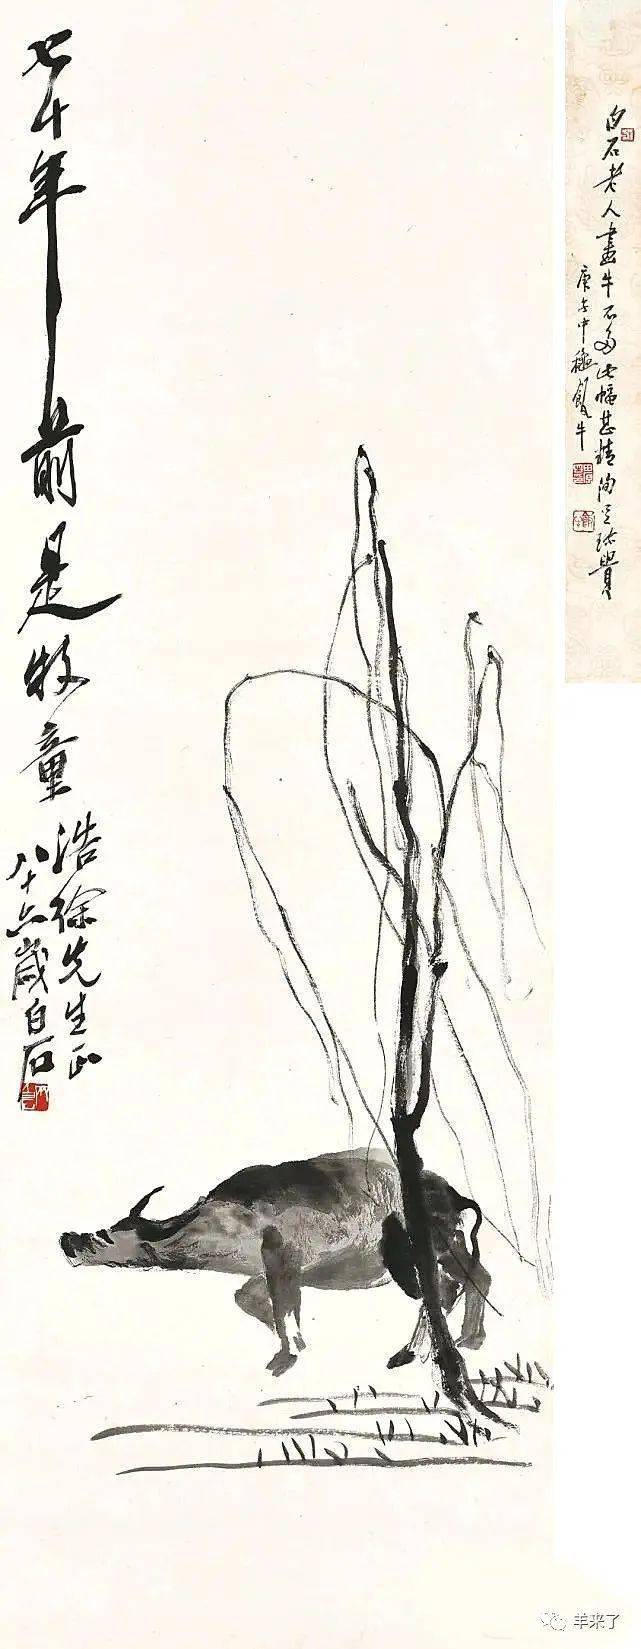 白石老人畫牛不多此幅甚精洵足珍貴
庚午中穐飯牛
七十年前是牧童
浩徐先生正
八十六歲白石
羊来了